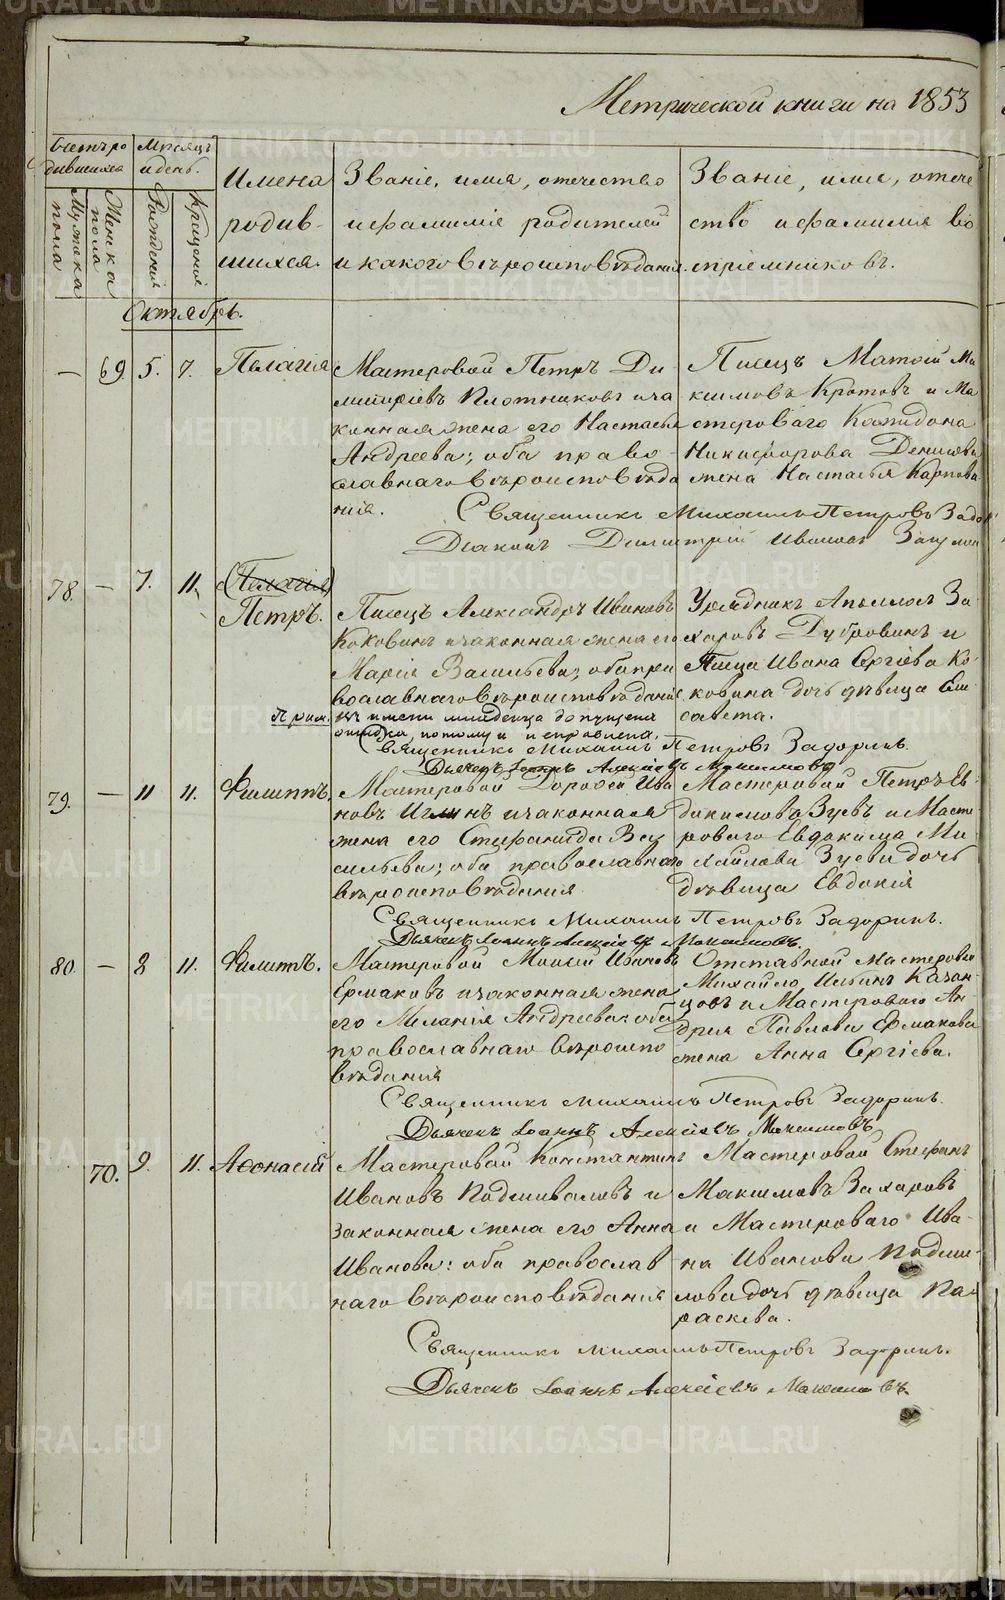 Метрической книги на 1853
Счетъ родившихся
Мѣсяцъ и день.
Имена родившихся.
Званіе, имя, отечество и фамилія родителей и какого вѣроисповѣданія.
Званіе, имя, отечество и фамилія воспріемниковъ.
Мужеска пола
Женска пола
Рожденія
Крещенія
Октябрь.
— 69. 5. 7. Палагія
Мастеровой Петръ Ди
митріевъ Плотниковъ и за
конная жена его Настасья
Андреева; оба право
славнаго вѣроисповѣда
нія.
Писецъ Матѳій Ма
ксимовъ Кротовъ и Ма
стероваго
Никифорова Денисова
жена Настасья Карпова
Священникъ Михаилъ Петровъ Задор
Діаконъ Димитрій Ивановъ
78. — 7. 11. (Пелагія)
Петръ.
Писецъ Александръ Ивановъ
Коковинъ и законная жена его
Марія Васильева; оба пра
вославнаго вѣроисповѣданія
Прим. въ имени младенца допущена
ошибка, потому и исправлена.
Урядникъ Аполлосъ За
харовъ Дубровинъ и
Писца Ивана Сергіева Ко
ковина дочь дѣвица Ели
савета.
Священникъ Михаилъ Петровъ Задоринъ.
Дьячекъ Іоаннъ Алексіевъ Максимовъ
79. — 11 11. Филиппъ.
Мастеровой Дороѳей Ива
новъ и законная
жена его Стефанида Ва
сильева; оба православнаго
вѣроисповѣданія
Мастеровой Петръ Ев
докимовъ Зуевъ и Масте
роваго Евдокима Ми
хайлова Зуева дочь
дѣвица Евдокія
Священникъ Михаилъ Петровъ Задоринъ.
Дьячекъ Іоаннъ Алексіевъ Максимовъ.
80. — 8 11. Филиппъ.
Мастеровой Моисей Ивановъ
Ермаковъ и законная жена
его Меланія Андреева: оба
православнаго вѣроиспо
вѣданія
Отставной Мастеровой
Михайло Казан
цовъ и Мастероваго Ан
дрея Павлова Ермакова
жена Анна Сергіева.
Священникъ Михаилъ Петровъ Задоринъ.
Дьячекъ Іоаннъ Алексіевъ Максимовъ
70. 9. 11. Аѳонасій
Мастеровой Константинъ
Ивановъ Подшиваловъ и
законная жена его Анна
Иванова: оба православ
наго вѣроисповѣданія
Мастеровой Стефанъ
Максимовъ Захаровъ
и Мастероваго Ива
на Иванова Подши
лова дочь дѣвица Па
раскева.
Священникъ Михаилъ Петровъ Задоринъ.
Дьячекъ Іоаннъ Алексіевъ Максимовъ
METRIKI.GASO-URAL.RU